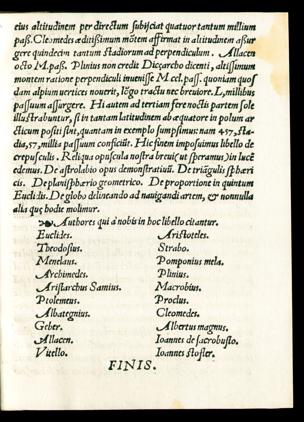 eius altitudinem per directum subijciat quatuor tantum millium
paß. Cleomedes æditißimum mõtem affirmat in altitudinem aßur
gere quindecim tantum stadiorum ad perpendiculum. Allacen
octo M. paß. Plinius non credit Dicæarcho dicenti, altissimum
montem ratione perpendiculi inuenisse M. ccl. pass. quoniam quos
dam alpium vertices nouerit, lõgo tractu nec breuiore. L, millibus
passuum assurgere. Hi autem ad tertiam fere noctis partem sole
illustrabuntur, si in tantam latitudinem ab æquatore in polum ar
cticum positi sint, quantam in exemplo sumpsimus: nam 457, sta,
dia, 57, millia passuum conficiũt. Hic finem imposuimus libello de
crepusculis. Reliqua opuscula nostra breui (ut speramus) in lucẽ
edemus. De astrolabio opus demonstratiuũ. De triãgulis sphæri
cis. De planisphærio geometrico. De proportione in quintum
Euclidis. De globo delineando ad nauigandi artem, & nonnulla
alia que hodie molimur.
Authores qui à nobis in hoc libello citantur.
Euclides.
Theodosius.
Menelaus.
Archimedes.
Aristarchus Samius.
Ptolemeus.
Albategnius.
Geber.
Allacen.
Vitello.
Aristoteles.
Strabo.
Pomponius mela.
Plinius.
Macrobius.
Proclus.
Cleomedes.
Albertus magnus.
Ioannes de sacrobusto.
Ioannes stofler.
FINIS.